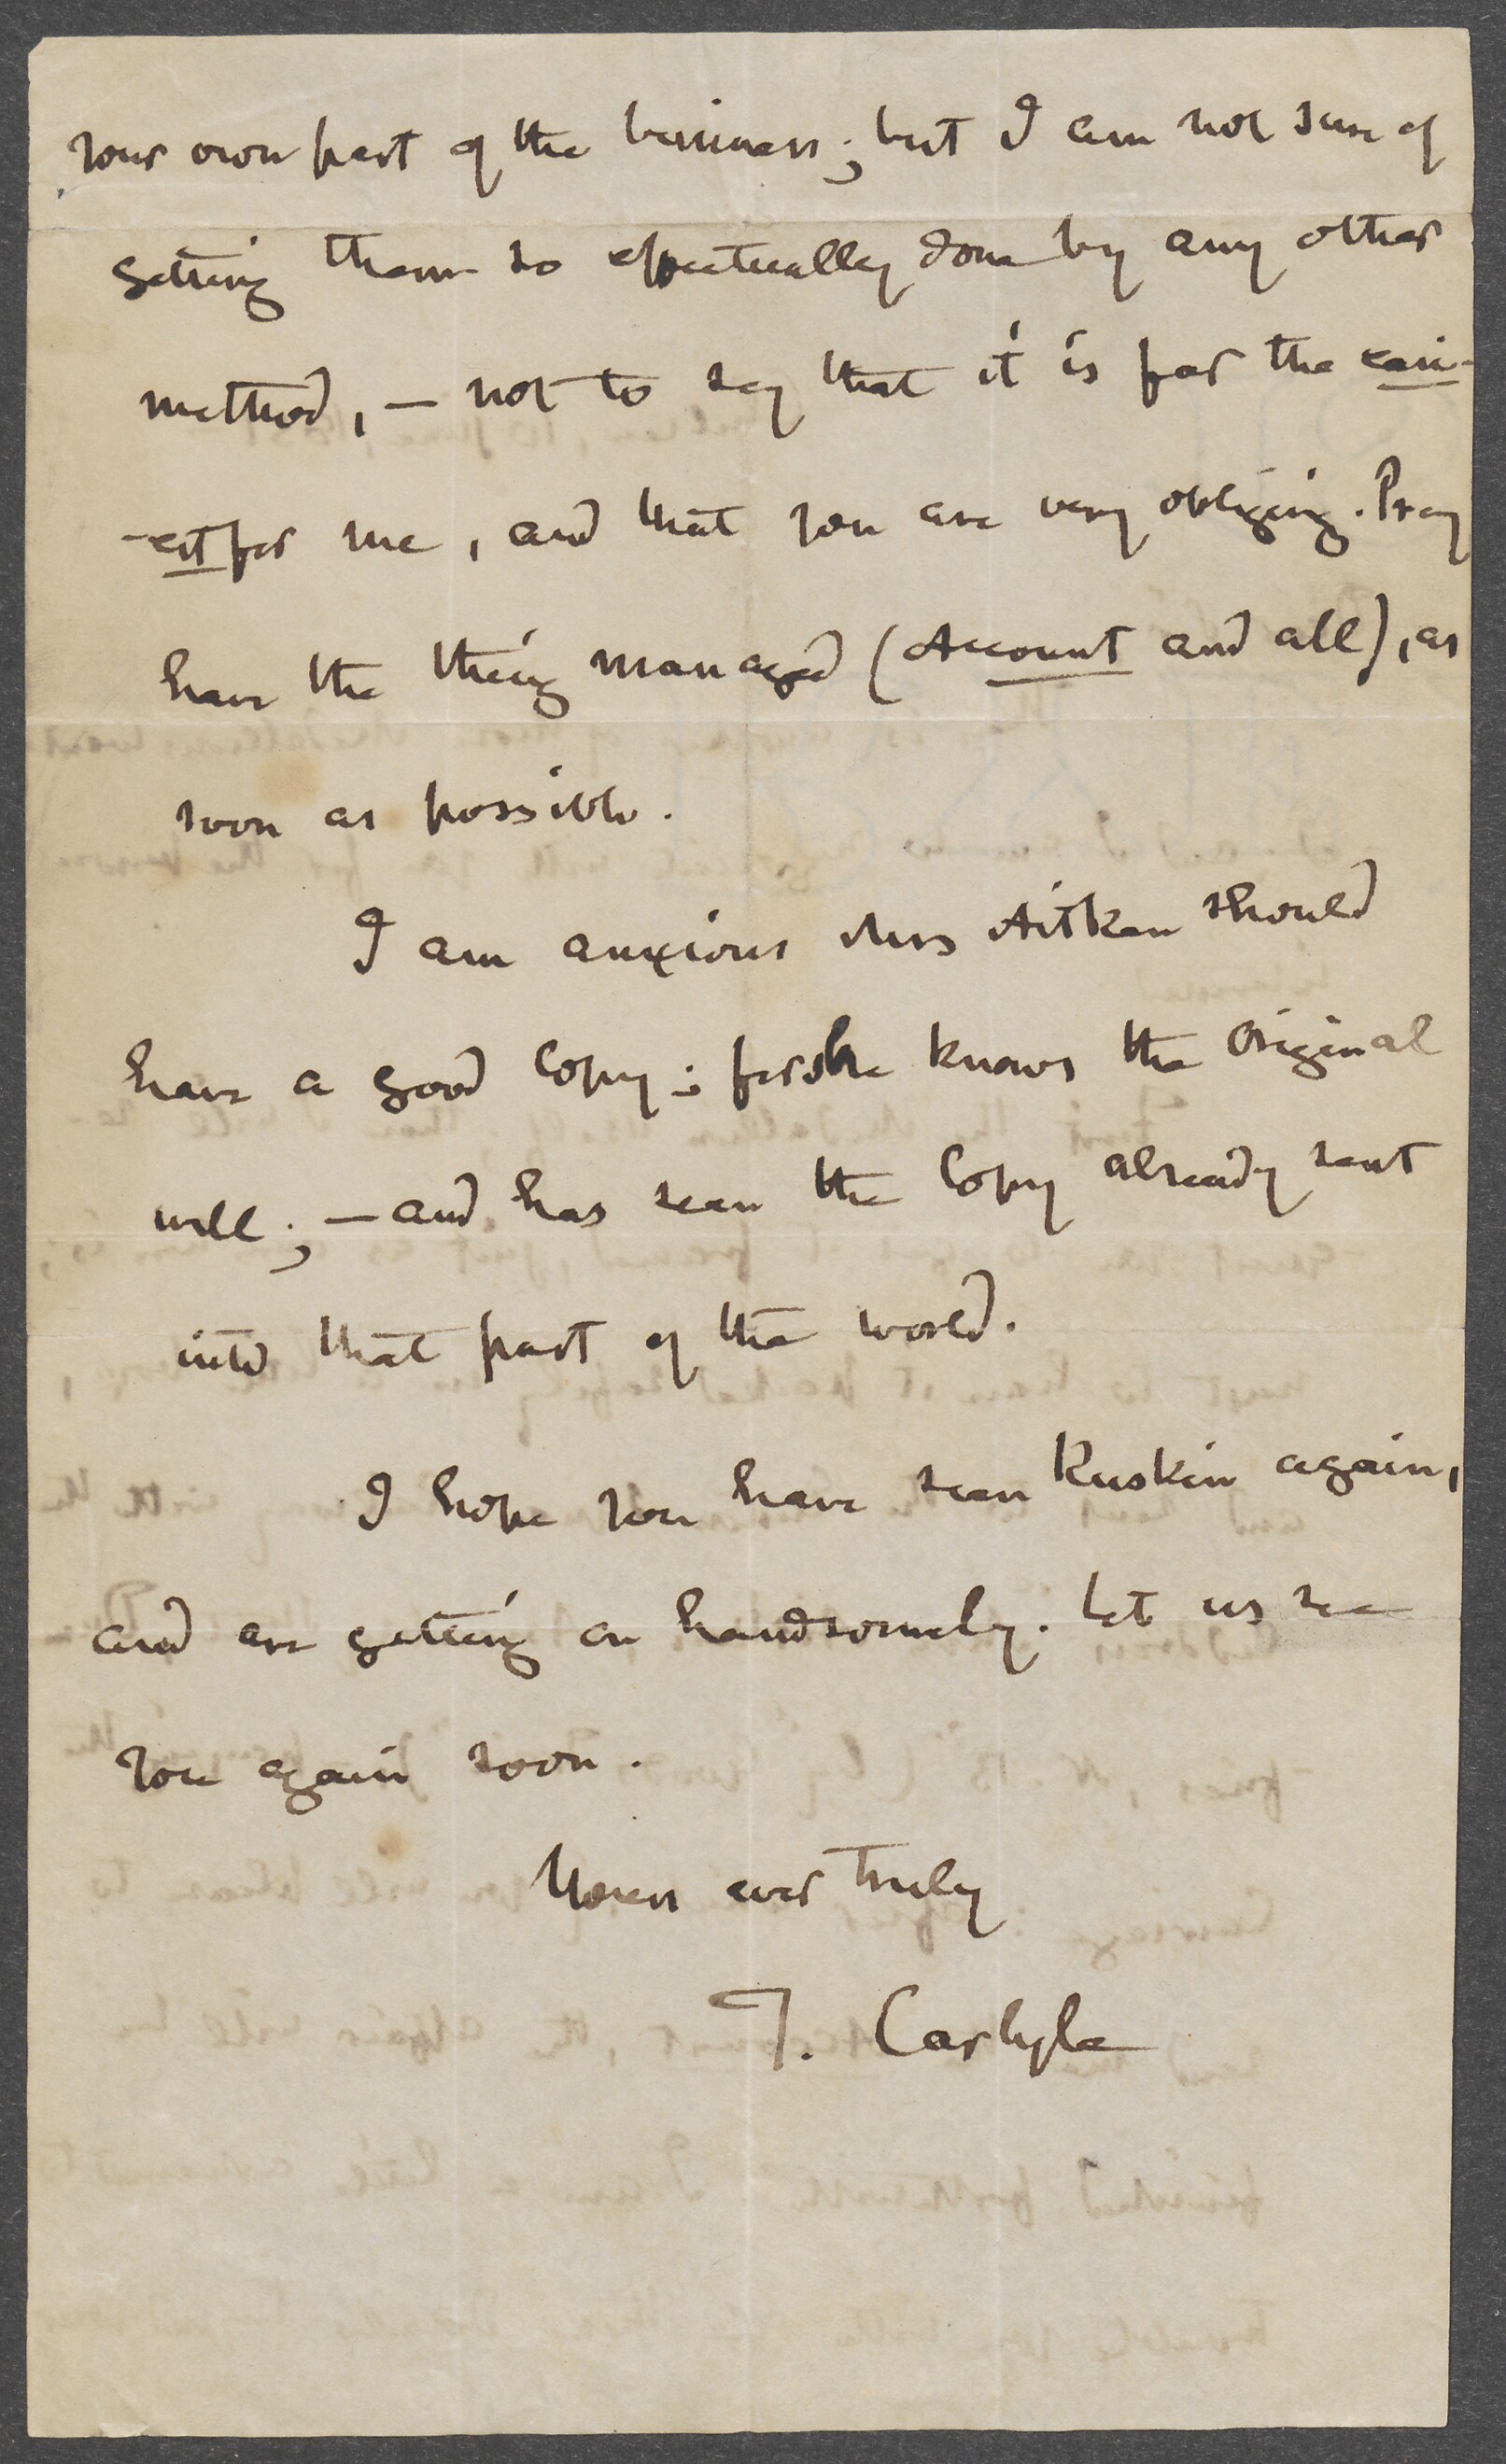 your own part of the business; but I am not sure of
getting them so effectually done by any other
method, — not to say that it is far the easi-
-est for me, and that you are very obliging. Pray
have the thing managed (Account and all), as
soon as possible.
I am anxious Mrs Aitken should
have a good Copy; for she knows the Original
well; — and has seen the Copy already sent
into that part of the world.
I hope you have seen Ruskin again,
and are getting on handsomely. Let us see
you again soon.
Yours ever truly
T. Carlyle